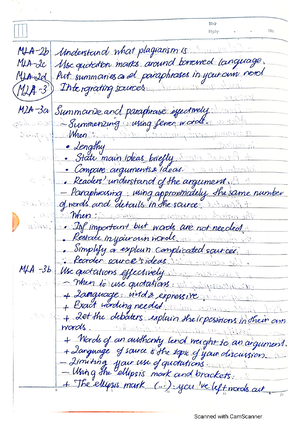 MLA-2b Understand what plagiarism is
MLA-2c Use quotation marks around borrowed language.
MLA-2d Put summaries and paraphrases in your own word
MLA-3 Intergrating sources
MLA-3a Summarize and paraphrase effectively
- Summarizing: using fewer words.
When:
• Lengthy
• State main ideas briefly
• Compare arguments & ideas.
• Readers' understand of the argument.
- Paraphrasing: using approximately the same number
of words and details in the source.
When:
• Inf important but words are not needed.
• Restate in your own words.
• Simplify & explain complicated sources.
• Reorder source's ideas.
MLA-3b Use quotations effectively
- When to use quotations:
+ Language: vivid & expressive
+ Exact wording needed
+ Let the debaters explain their positions in their own
words.
+ Words of an authority lend weight to an argument.
+ Language of source is the topic of your discussion.
- Limiting your use of quotations
- Using the ellipsis mark and brackets.
+ The ellipsis mark (...): you 've left words out
Scanned with CamScanner